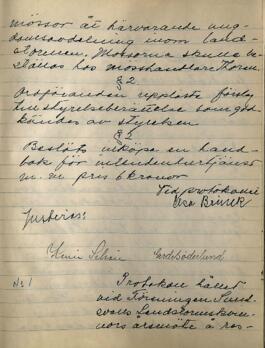 mössor åt härvarande ung-
domsavdelning inom land-
stormen. Mössorna skulle be-
ställas hos mösshandlare Thorn.
§ 2
Ordföranden upplästes förslag
till styrelseberättelse som god-
kändes av styrelsen
§ 3
Beslöts inköpa en hand-
bok för inländertjänst
m. m pris 6 kronor
Vid protokollet
Elsa Brinck
Justeras:
Gerd Söderlund
No 1
Protokoll hållet
vid Föreningen Sund-
svalls Landstormskvin-
nors årsmöte å res-